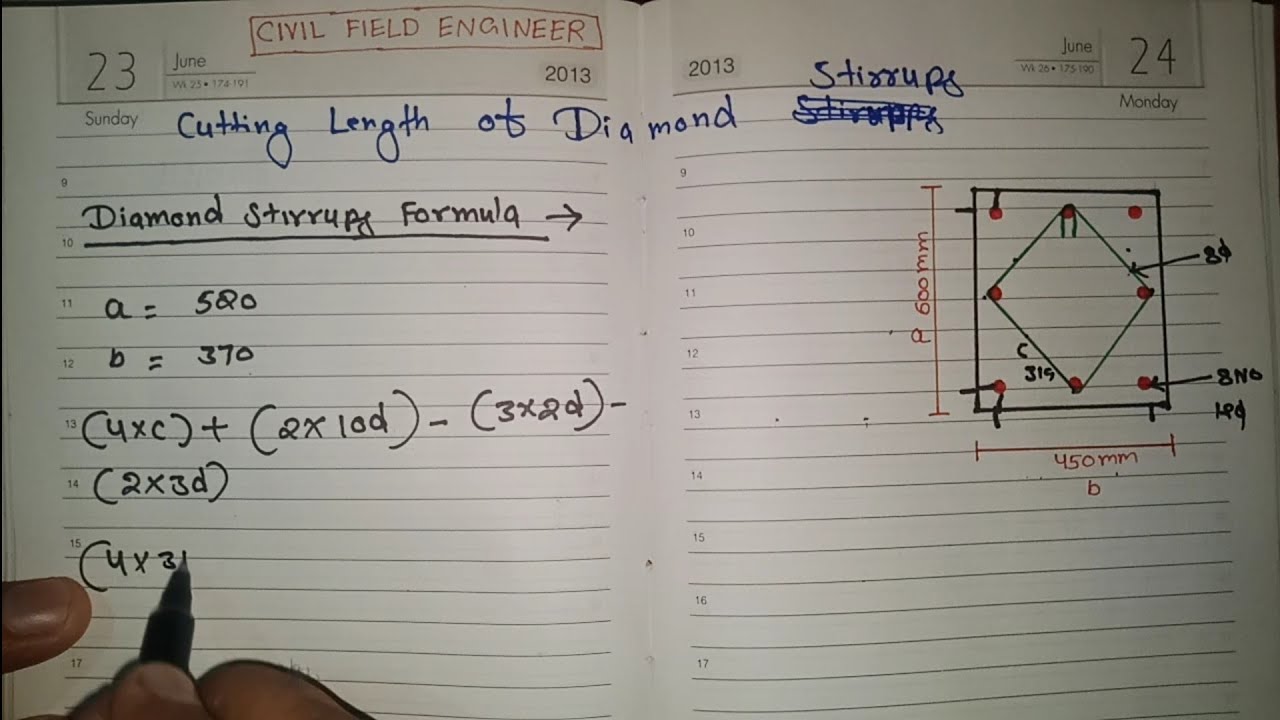 CIVIL FIELD ENGINEER
23 June
Wk 25 • 174-191
2013
Sunday
Cutting Length of Diamond Stirrups
9
Diamond Stirrups Formula →
10
11 a = 520
12 b = 370
13 (4×c) + (2×10d) - (3×2d) -
14 (2×3d)
15 (4×31
17
2013
June 24
Wk 26 • 175-190
Monday
9
10
11
12
13
14
15
16
17
a 600mm
8φ
c
319
8NO
450mm
b